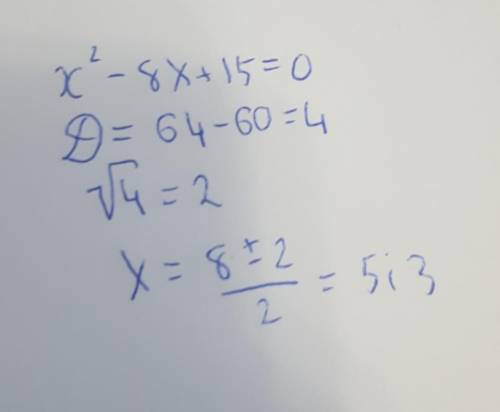 x² - 8x + 15 = 0
D = 64 - 60 = 4
√4 = 2
x = (8 ± 2)/2 = 5; 3